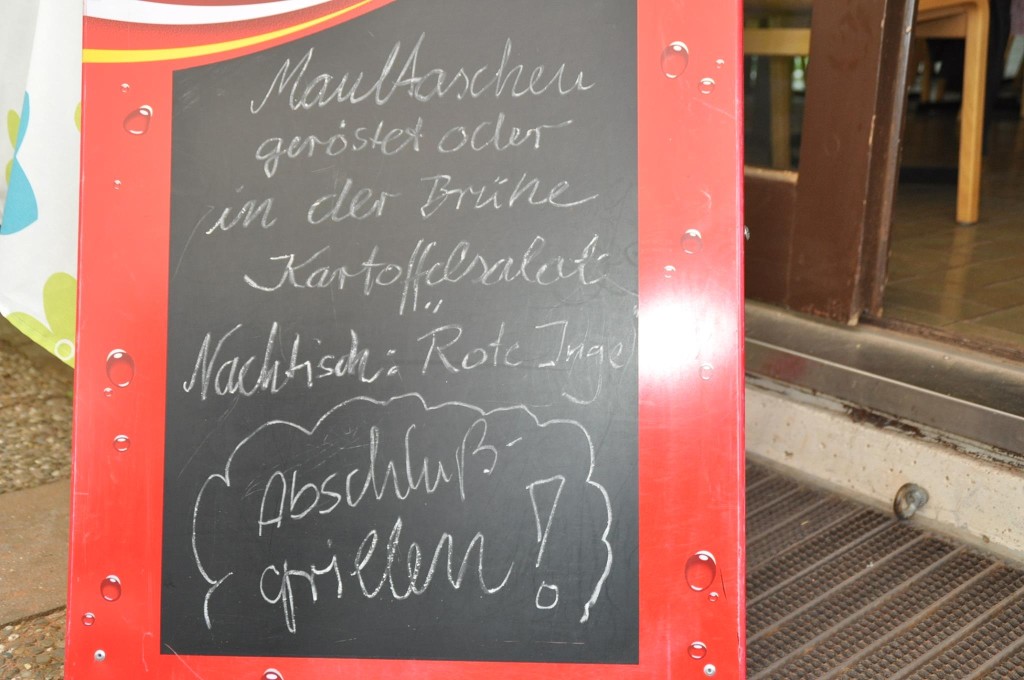 Maultaschen
geröstet oder
in der Brühe
Kartoffelsalat
Nachtisch: Rote Inge
Abschluß-
grillen!